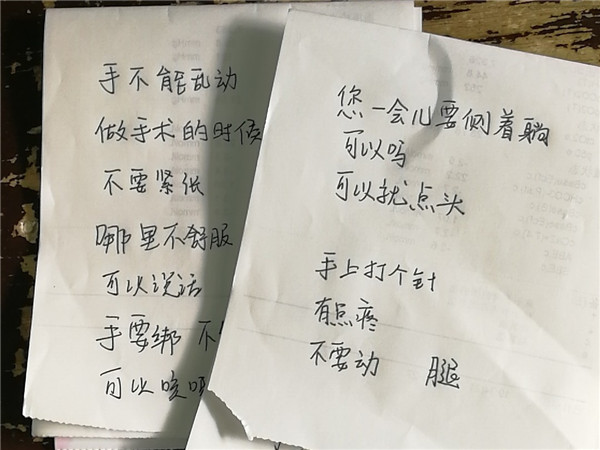 手不能乱动
做手术的时候
不要紧纸
哪里不舒服
可以说话
手要绑 不
可以咳
您一会儿要侧着躺
可以吗
可以扰点头
手上打个针
有点疼
不要动 腿